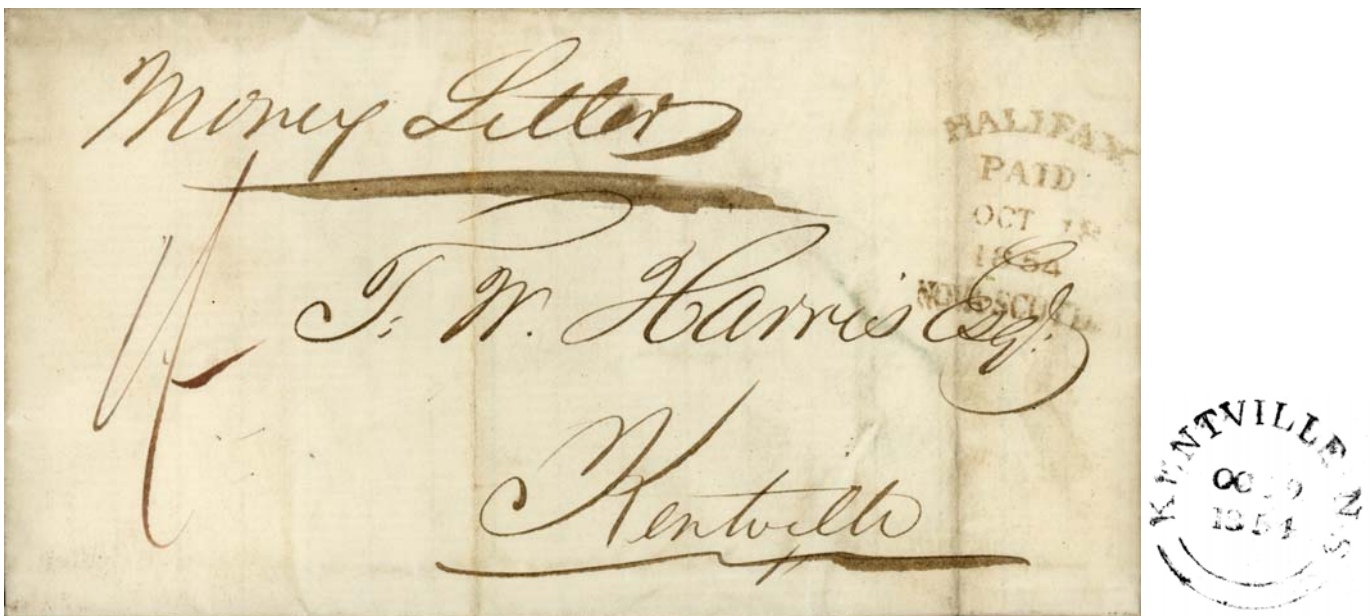 Money Letter
HALIFAX
PAID
OCT 18
1854
NOVA SCOTIA
T. W. Harris Esqr.
Kentville
KENTVILLE N.S
OC 19
1854